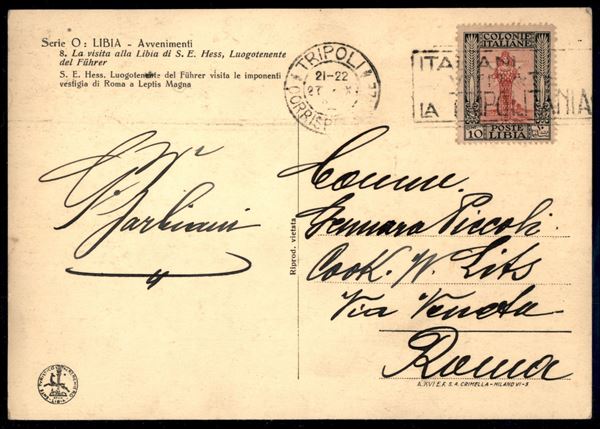 Serie O: LIBIA - Avvenimenti
8. La visita alla Libia di S. E. Hess, Luogotenente
del Führer
S. E. Hess. Luogotenente del Führer visita le imponenti
vestigia di Roma a Leptis Magna
TRIPOLI
21-22
27
CORRISP
ITALIANI
LA TRIPOLITANIA
COLONIE
ITALIANE
10
POSTE
LIBIA
Comm.
Gennaro Piccoli
Cook. W. Lits
Via Veneto
Roma
Riprod. vietata
A. XVI E.F. S.A. CRIMELLA - MILANO VI-5